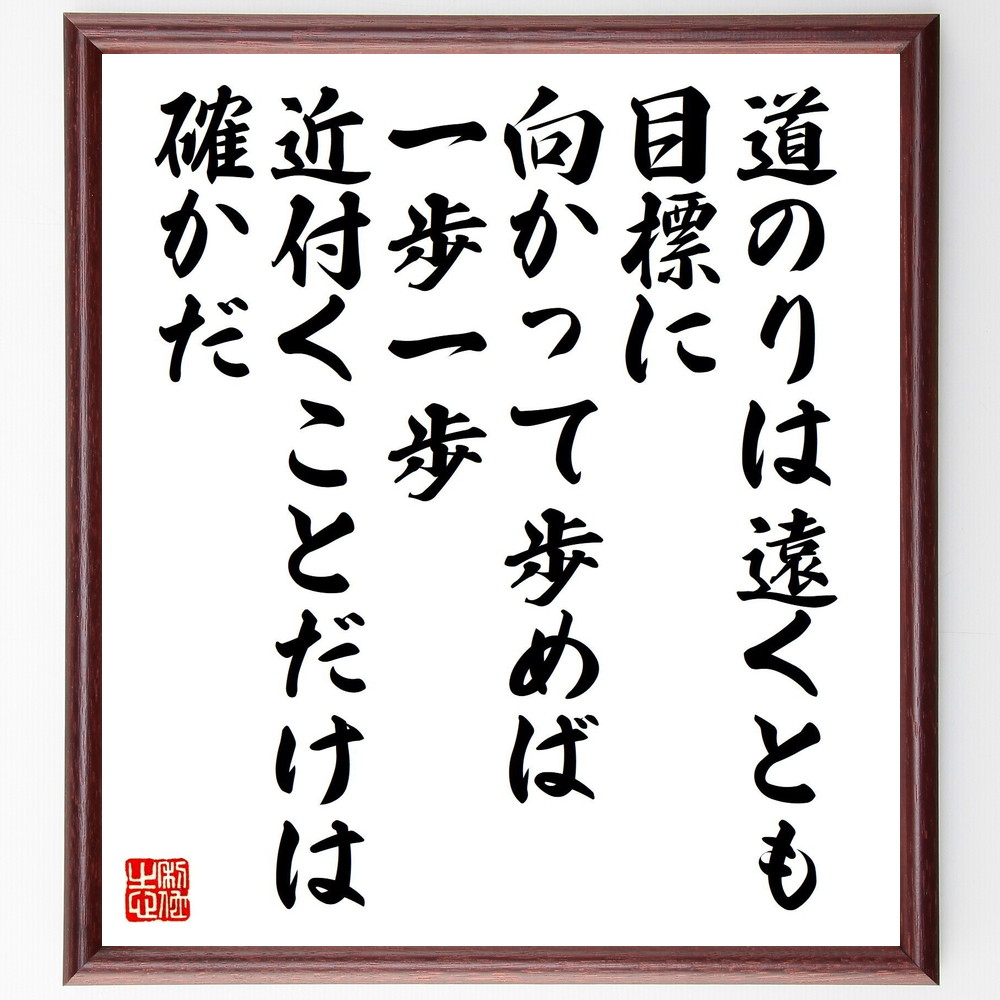 道のりは遠くとも
目標に
向かって歩めば
一歩一歩
近付くことだけは
確かだ